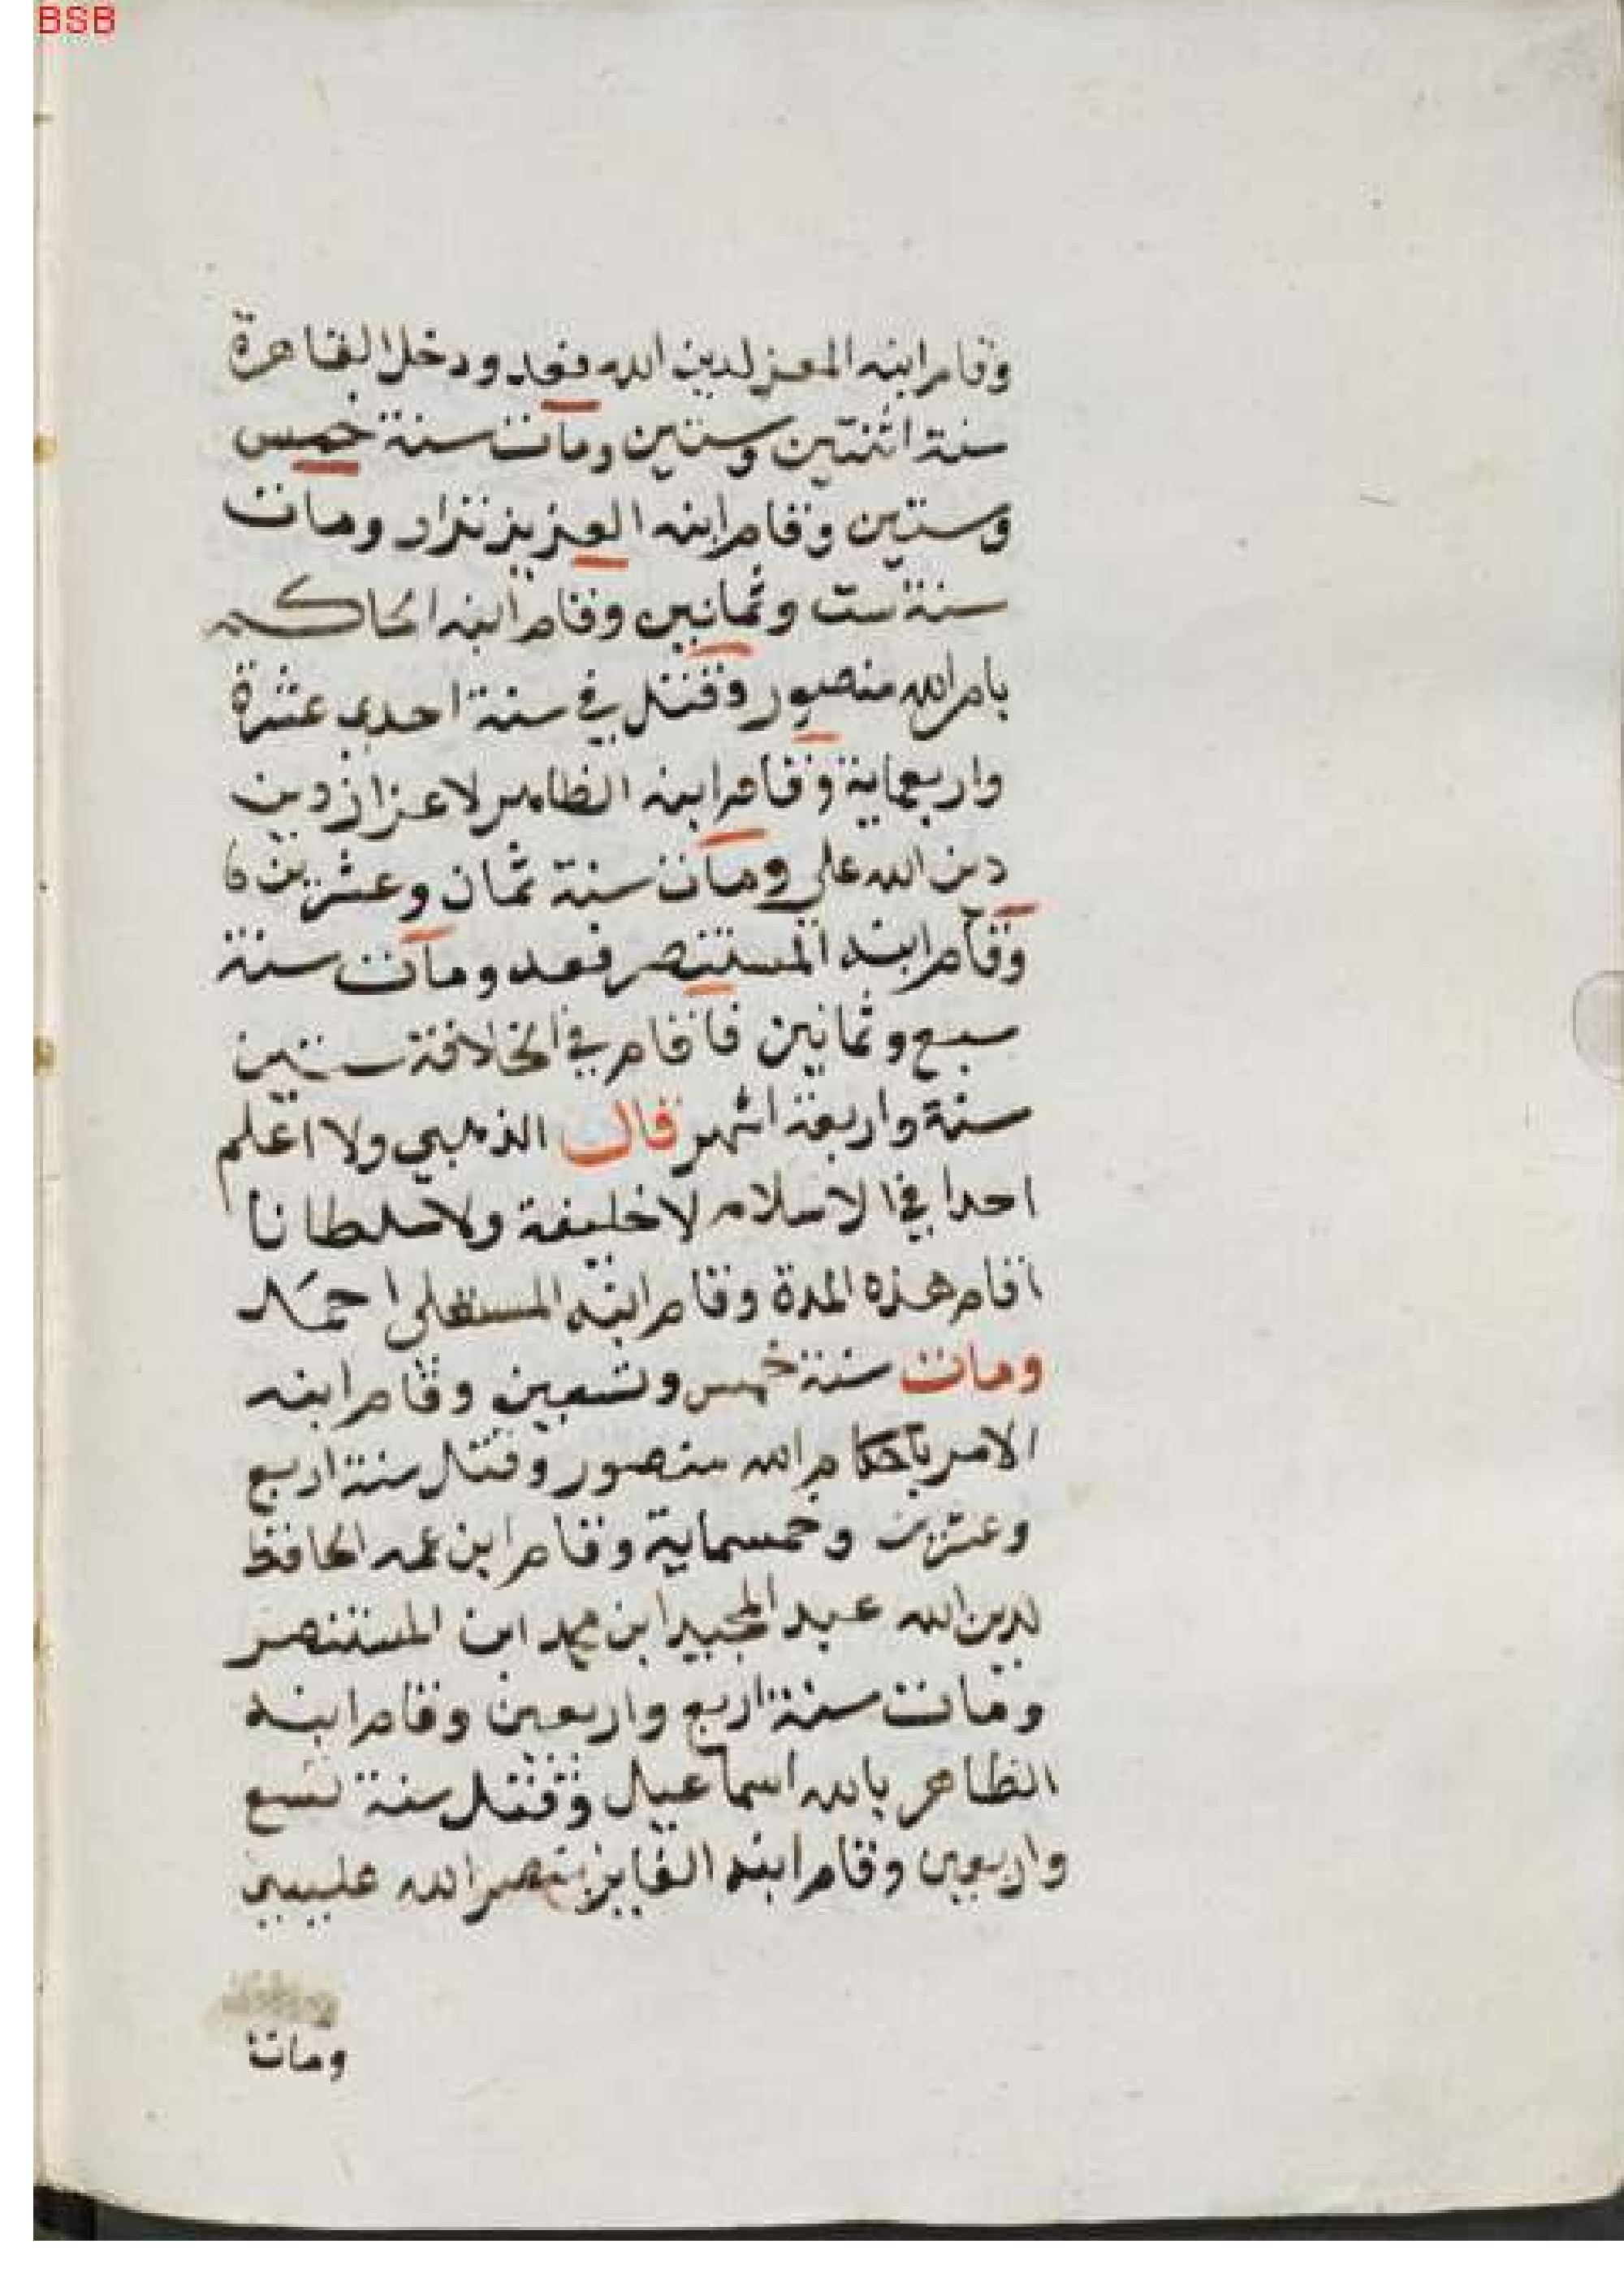 BSB
وقام ابنه المعز لدين الله فعد ودخل القاهرة
سنة اثنتين وستين ومات سنة خمس
وستين وقام ابنه العزيز نزار ومات
سنة ست وثمانين وقام ابنه الحاكم
بامر الله منصور وقتل في سنة احدى عشرة
واربعماية وقام ابنه الظاهر لاعزاز دين
دين الله علي ومات سنة ثمان وعشرين
وقام ابنه المستنصر فعد ومات سنة
سبع وثمانين فاقام في الخلافة ستين
سنة واربعة اشهر قال الذهبي ولا اعلم
احدا في الاسلام لا خليفة ولا سلطانا
اقام هذه المدة وقام ابنه المستعلي احمد
ومات سنة خمس وتسعين وقام ابنه
الامر باحكام الله منصور وقتل سنة اربع
وعشرين وخمسماية وقام ابن عمه الحافظ
لدين الله عبد المجيد ابن محمد ابن المستنصر
ومات سنة اربع واربعين وقام ابنه
الظاهر بالله اسماعيل وقتل سنة تسع
واربعين وقام ابنه الفايز بنصر الله عيسى
ومات